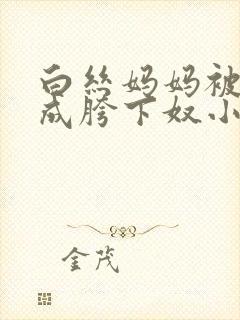 白丝妈妈被
成胯下奴小
金茂